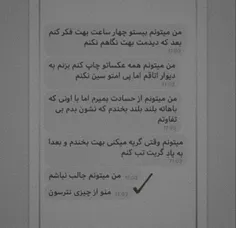 من میتونم بیستو چهار ساعت بهت فکر کنم
بعد که دیدمت بهت نگاهم نکنم
من میتونم همه عکساتو چاپ کنم بزنم به
دیوار اتاقم اما پی امتو سین نکنم
من میتونم از حسادت بمیرم اما با اونی که
باهاته بلند بلند بخندم که نشون بدم بی
تفاوتم
میتونم وقتی گریه میکنی بهت بخندم و بعدا
به یاد گریت تب کنم
من میتونم جالب نباشم
منو از چیزی نترسون